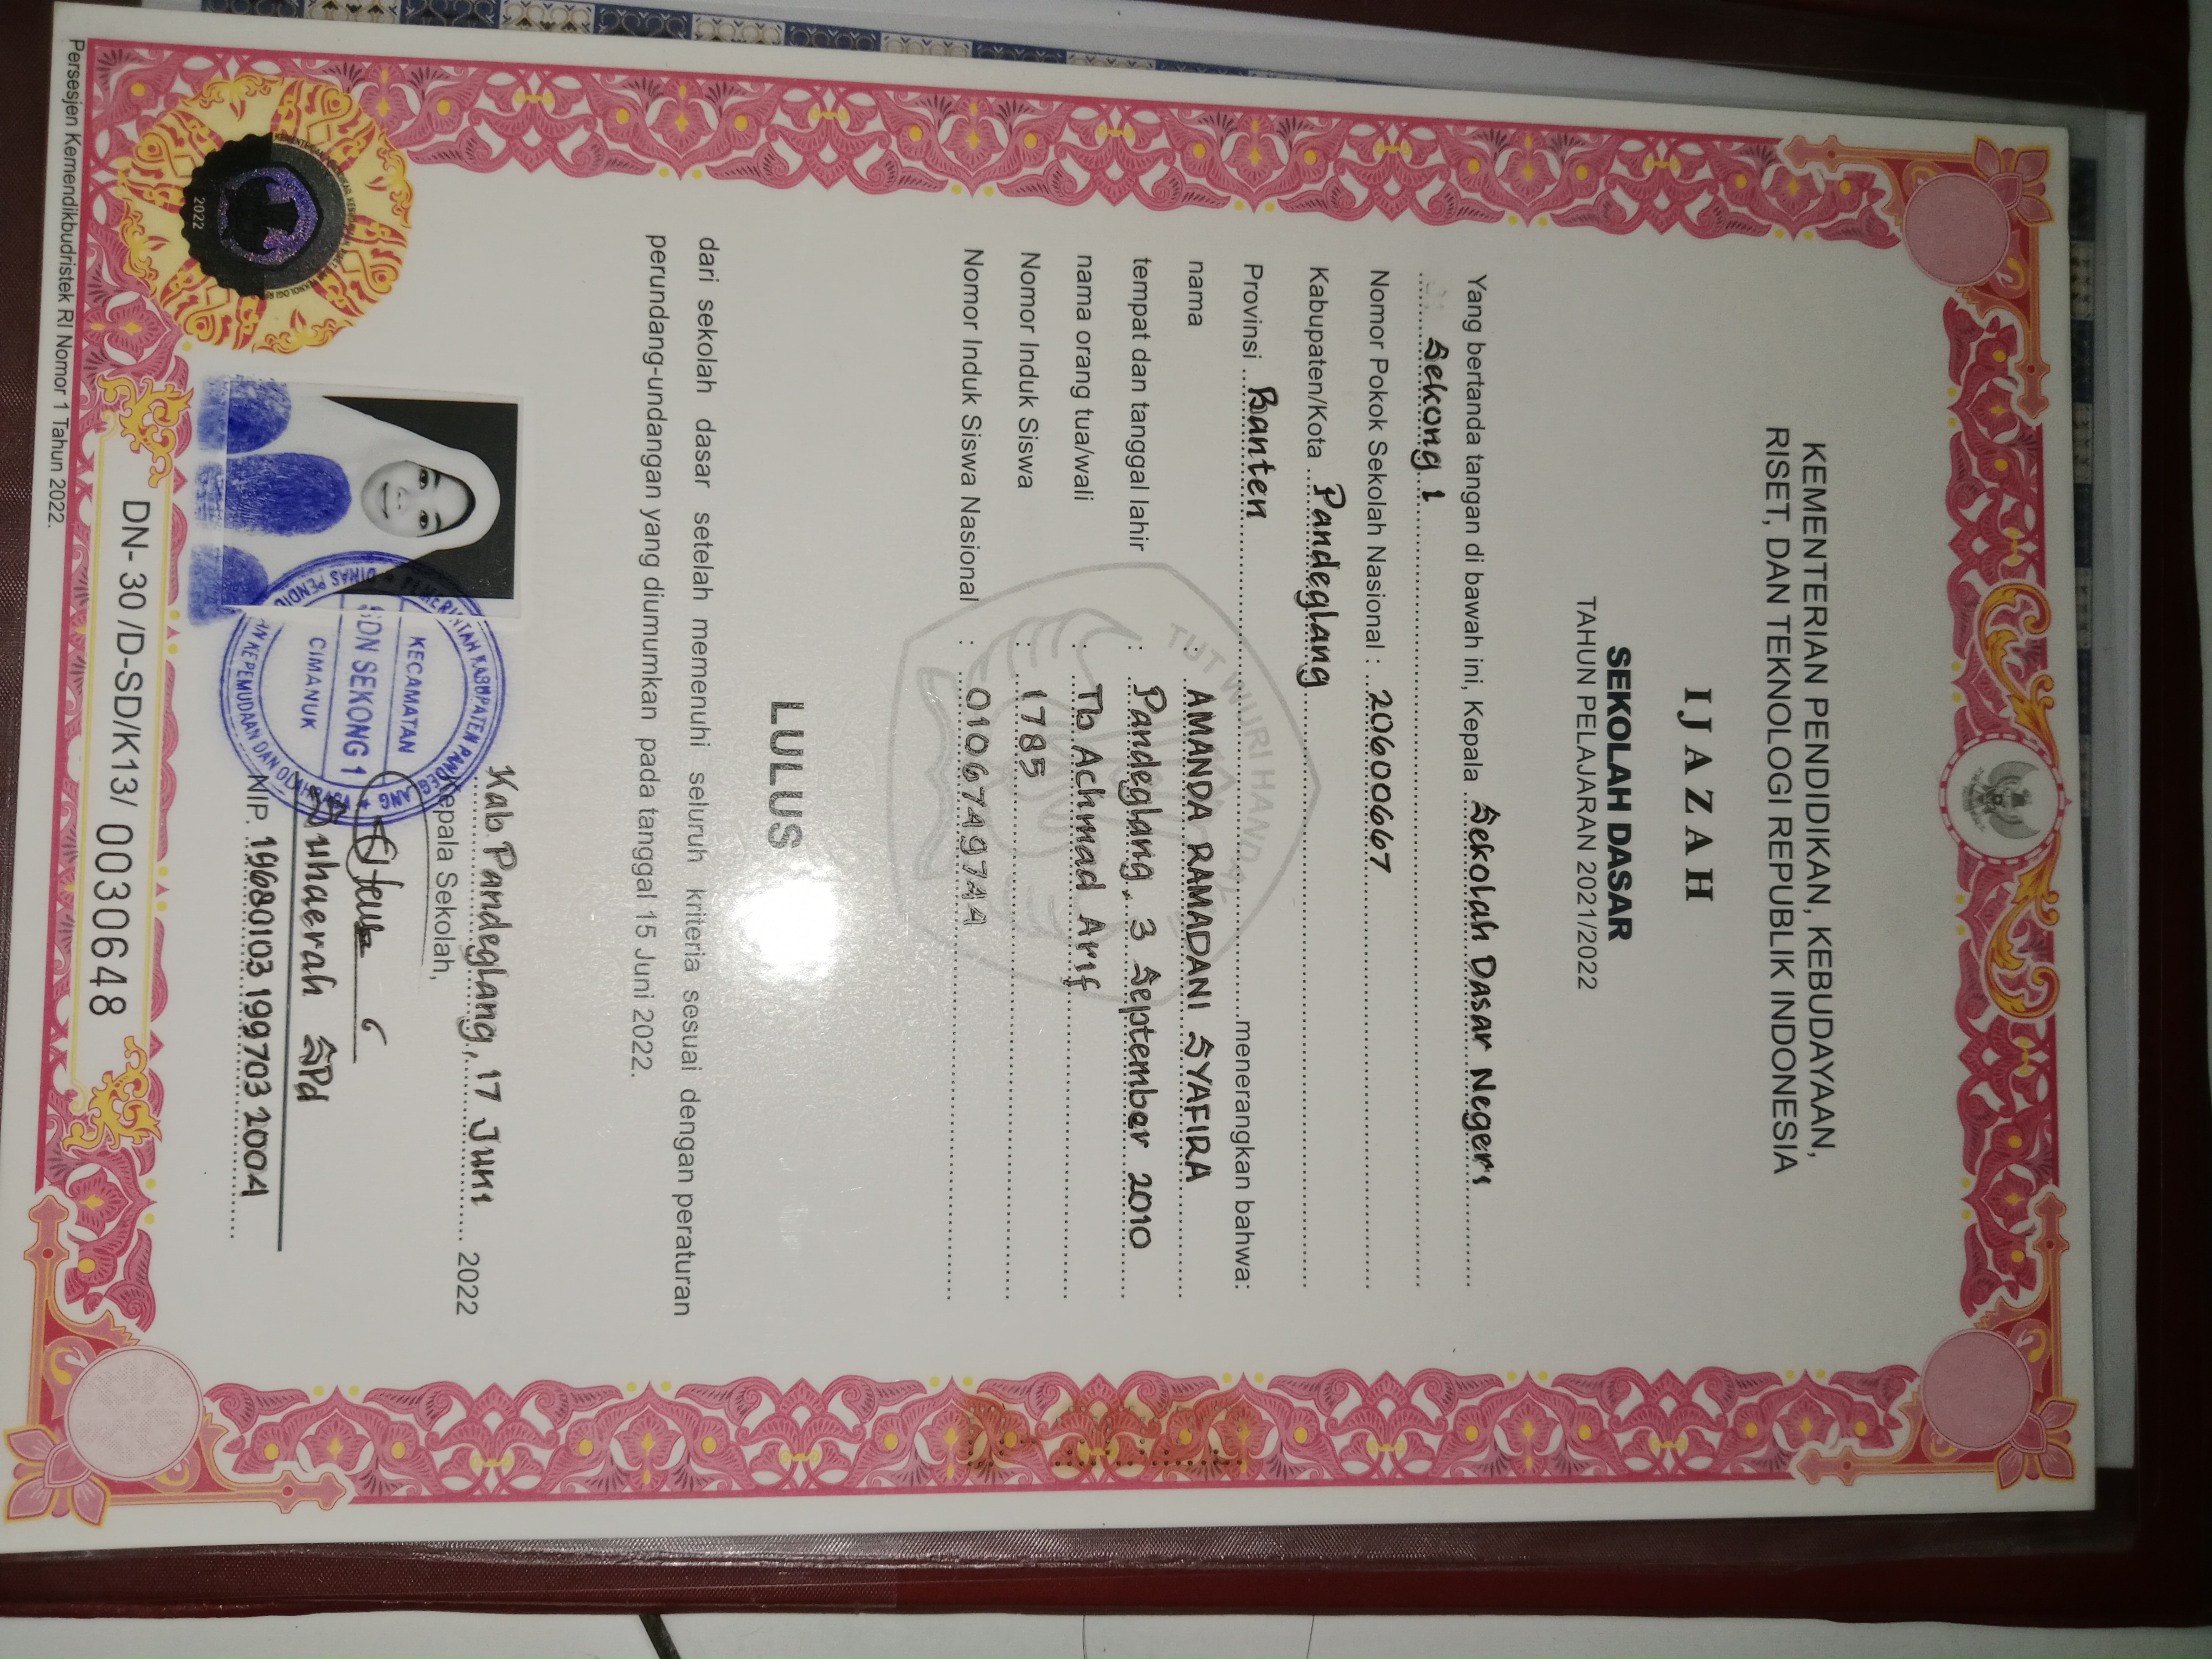 KEMENTERIAN PENDIDIKAN, KEBUDAYAAN,
RISET, DAN TEKNOLOGI REPUBLIK INDONESIA
IJAZAH
SEKOLAH DASAR
TAHUN PELAJARAN 2021/2022
Yang bertanda tangan di bawah ini, Kepala Sekolah Dasar Negeri
Sekong 1
Nomor Pokok Sekolah Nasional : 20600667
Kabupaten/Kota Pandeglang
Provinsi Banten menerangkan bahwa:
TUT WURI HANDAYANI
nama : AMANDA RAMADANI SYAFIRA
tempat dan tanggal lahir : Pandeglang, 3 September 2010
nama orang tua/wali : Tb Achmad Arif
Nomor Induk Siswa : 1785
Nomor Induk Siswa Nasional : 0106749744
LULUS
dari sekolah dasar setelah memenuhi seluruh kriteria sesuai dengan peraturan
perundang-undangan yang diumumkan pada tanggal 15 Juni 2022.
Kab Pandeglang, 17 Juni 2022
Kepala Sekolah,
PEMERINTAH KABUPATEN PANDEGLANG
KECAMATAN
SDN SEKONG 1
CIMANUK
KEPEMUDAAN DAN OLAHRAGA
Suhaerah SPd
NIP. 19680103 199703 2004
2022
DN- 30 /D-SD/K13/ 0030648
Persesjen Kemendikbudristek RI Nomor 1 Tahun 2022.